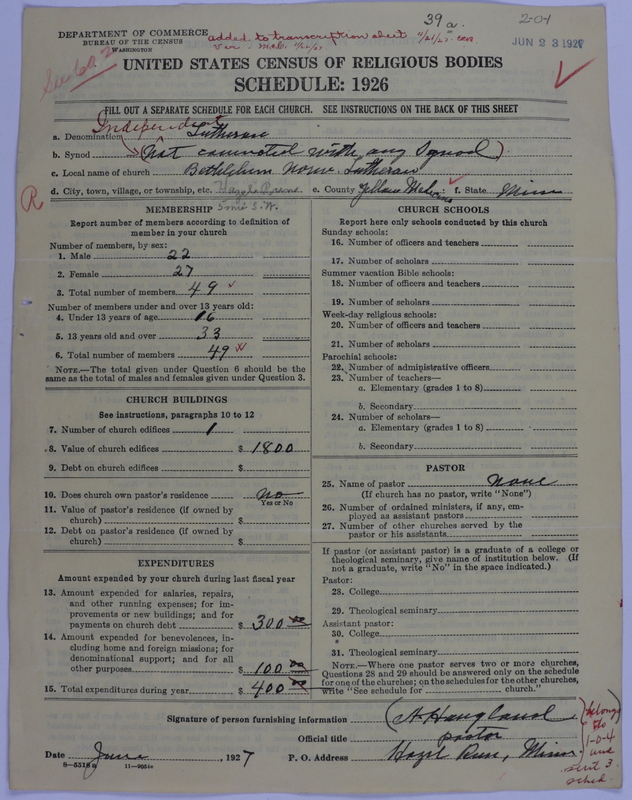 39 a. 2-01
DEPARTMENT OF COMMERCE
BUREAU OF THE CENSUS
WASHINGTON
added to transcription sheet 11/21/27
JUN 23 1927
UNITED STATES CENSUS OF RELIGIOUS BODIES
SCHEDULE: 1926
FILL OUT A SEPARATE SCHEDULE FOR EACH CHURCH. SEE INSTRUCTIONS ON THE BACK OF THIS SHEET
Independent
a. Denomination Lutheran
b. Synod (Not connected with any Synod)
c. Local name of church Bethlehem Norw. Lutheran
d. City, town, village, or township, etc. e. County Yellow Medicine f. State Minn
R
5 mi S.W.
MEMBERSHIP
Report number of members according to definition of
member in your church
Number of members, by sex:
1. Male 22
2. Female 27
3. Total number of members 49
Number of members under and over 13 years old:
4. Under 13 years of age 16
5. 13 years old and over 33
6. Total number of members 49
NOTE.—The total given under Question 6 should be
same as the total of males and females given under Question 3.
CHURCH BUILDINGS
See instructions, paragraphs 10 to 12
7. Number of church edifices 1
8. Value of church edifices $ 1800
9. Debt on church edifices $
10. Does church own pastor's residence no
Yes or No
11. Value of pastor's residence (if owned by
church) $
12. Debt on pastor's residence (if owned by
church) $
EXPENDITURES
Amount expended by your church during last fiscal year
13. Amount expended for salaries, repairs,
and other running expenses; for im-
provements or new buildings; and for
payments on church debt $ 300 00
14. Amount expended for benevolences, in-
cluding home and foreign missions; for
denominational support; and for all
other purposes $ 100 00
15. Total expenditures during year $ 400 00
CHURCH SCHOOLS
Report here only schools conducted by this church
Sunday schools:
16. Number of officers and teachers
17. Number of scholars
Summer vacation Bible schools:
18. Number of officers and teachers
19. Number of scholars
Week-day religious schools:
20. Number of officers and teachers
21. Number of scholars
Parochial schools:
22. Number of administrative officers
23. Number of teachers—
a. Elementary (grades 1 to 8)
b. Secondary
24. Number of scholars—
a. Elementary (grades 1 to 8)
b. Secondary
PASTOR
25. Name of pastor none
(If church has no pastor, write "None")
26. Number of ordained ministers, if any, em-
ployed as assistant pastors
27. Number of other churches served by the
pastor or his assistants
If pastor (or assistant pastor) is a graduate of a college or
theological seminary, give name of institution below. (If
not a graduate, write "No" in the space indicated.)
Pastor:
28. College
29. Theological seminary
Assistant pastor:
30. College
31. Theological seminary
NOTE.—Where one pastor serves two or more churches,
Questions 28 and 29 should be answered only on the schedule
for one of the churches; on the schedules for the other churches,
write "See schedule for church."
Signature of person furnishing information (A Haugland)
Official title pastor
Date June, 1927 P. O. Address Hazel Run, Minn.
8—5518a 11—9551
belongs
to
1-0-4
sent 3
sched.